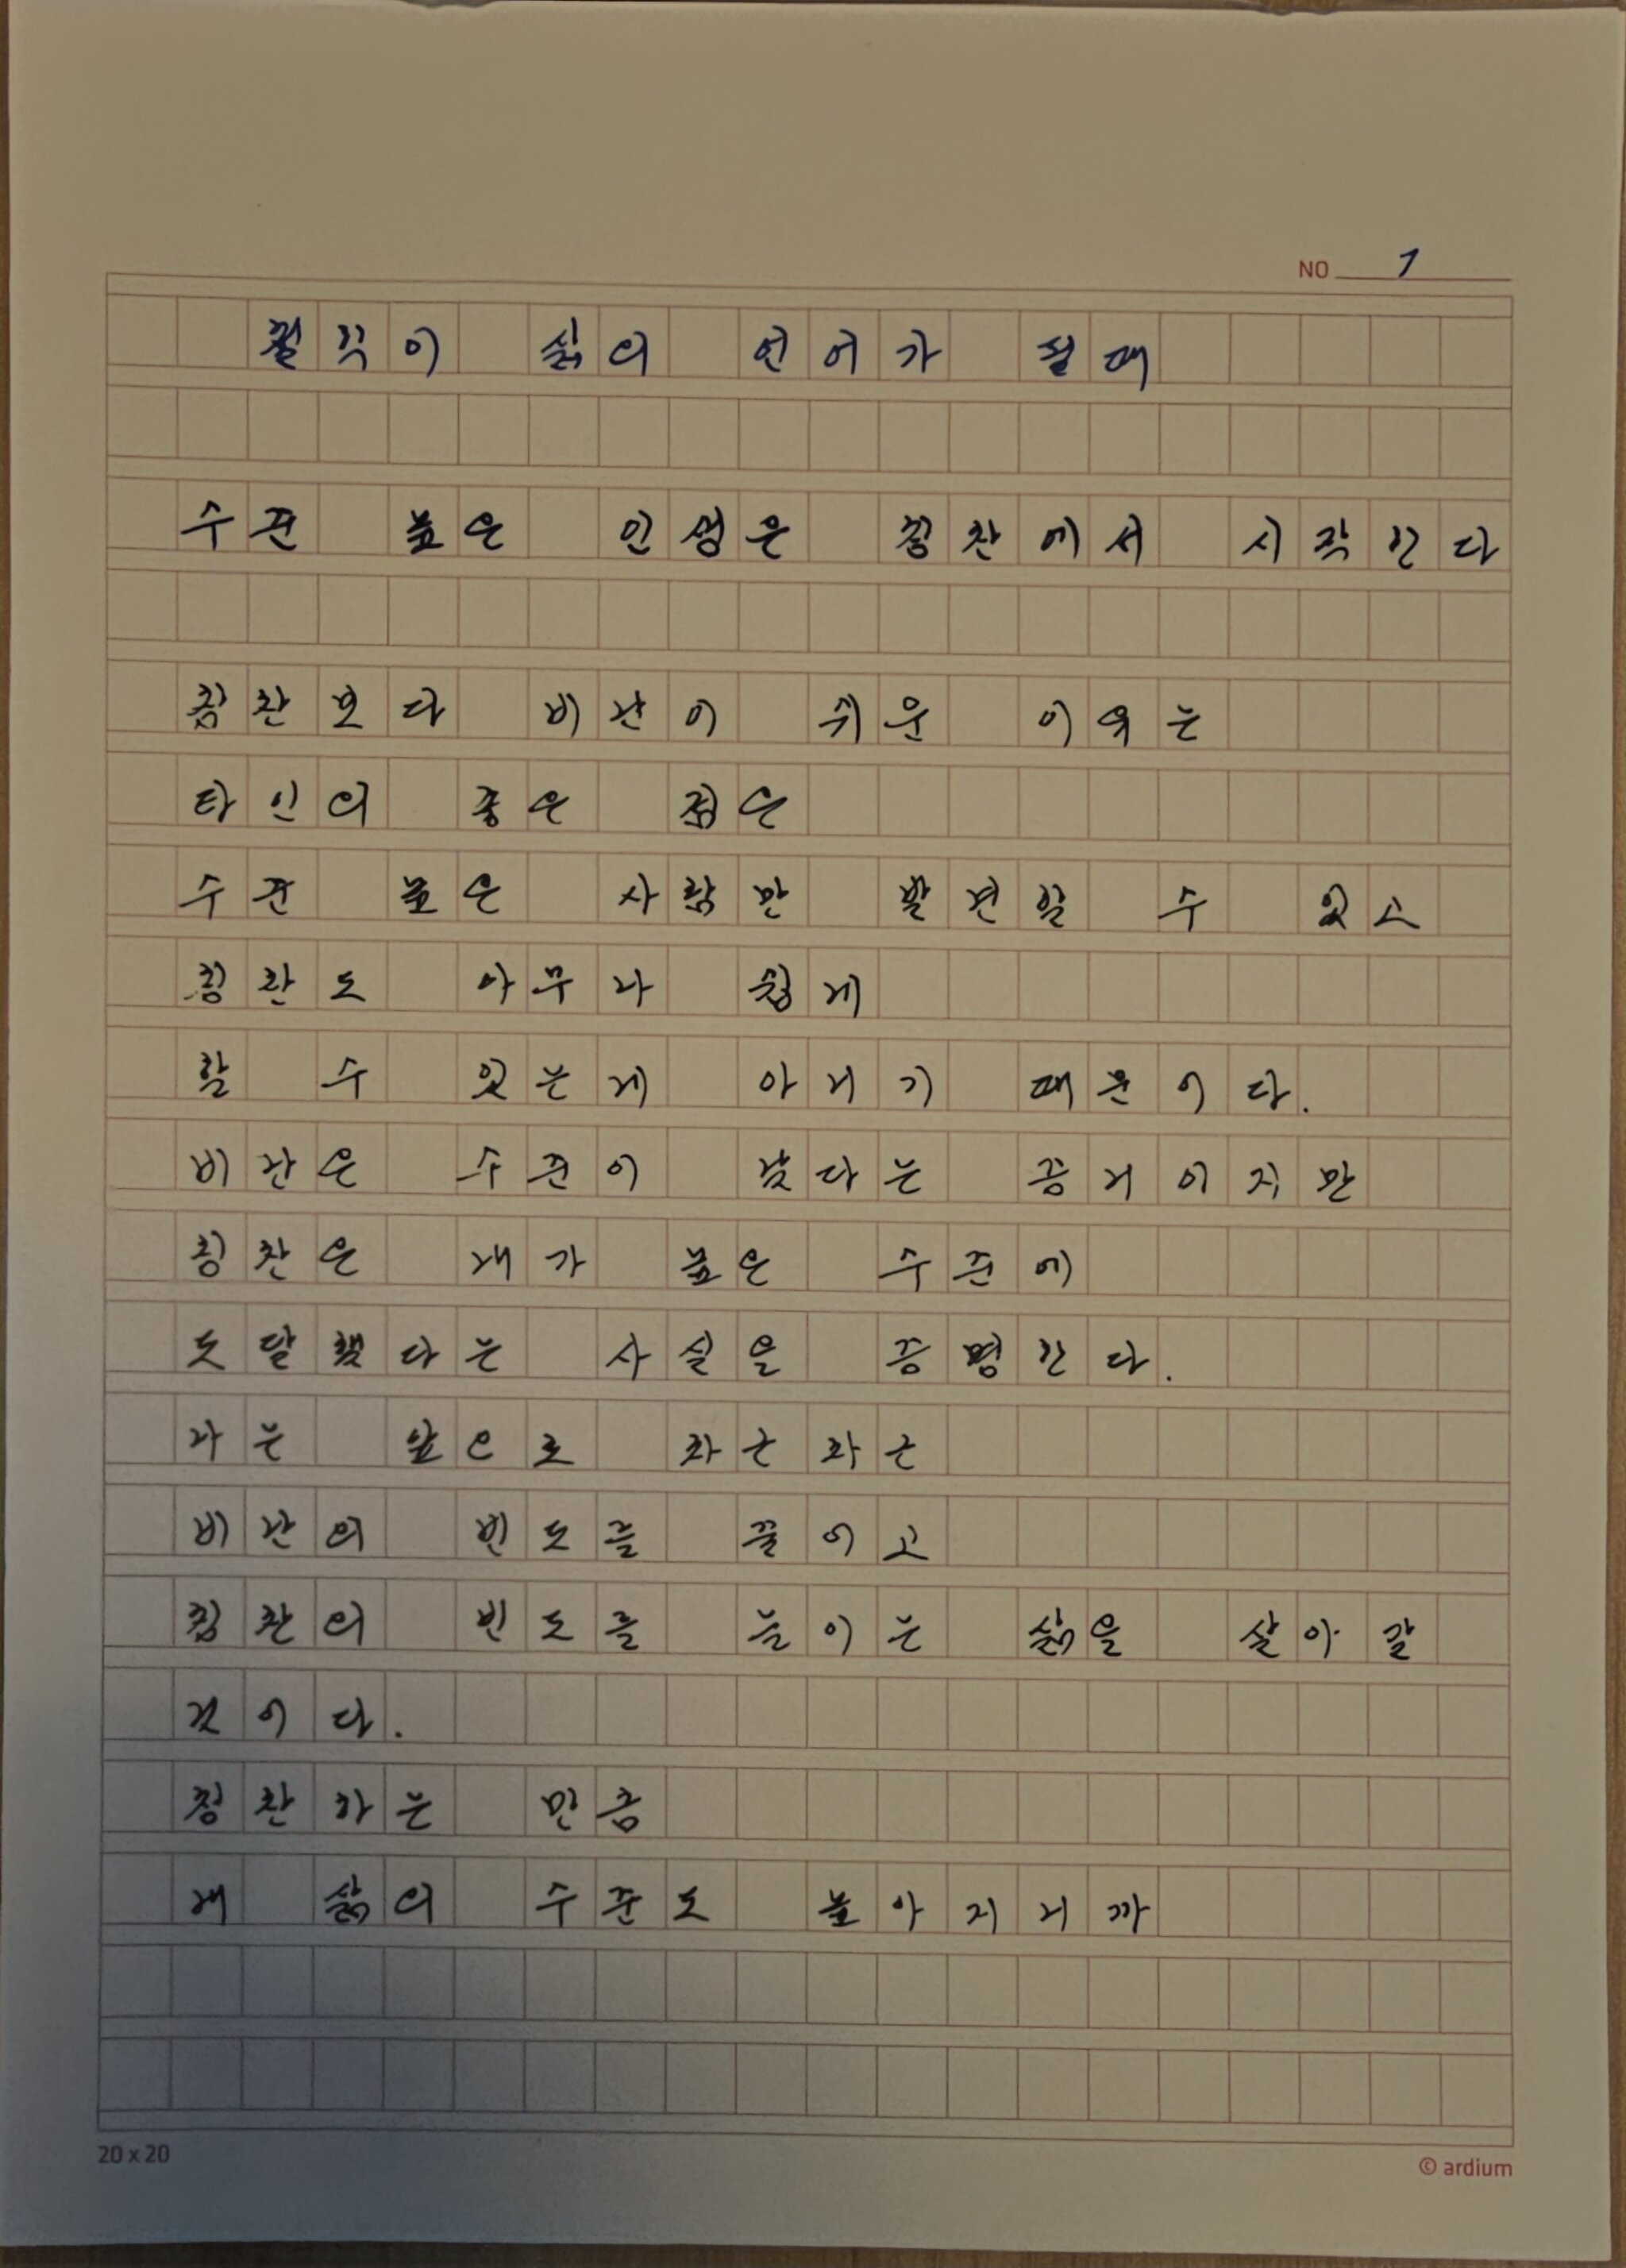 NO 1
철학이 삶의 언어가 될 때
수준 높은 인생은 칭찬에서 시작한다
칭찬보다 비난이 쉬운 이유는
타인의 좋은 점은
수준 높은 사람만 발견할 수 있고
칭찬도 아무나 쉽게
할 수 있는게 아니기 때문이다.
비난은 수준이 낮다는 증거이지만
칭찬은 내가 높은 수준에
도달했다는 사실을 증명한다.
나는 앞으로 차근차근
비난의 빈도를 줄이고
칭찬의 빈도를 높이는 삶을 살아갈
것이다.
칭찬하는 만큼
내 삶의 수준도 높아지니까
20 x 20
© ardium